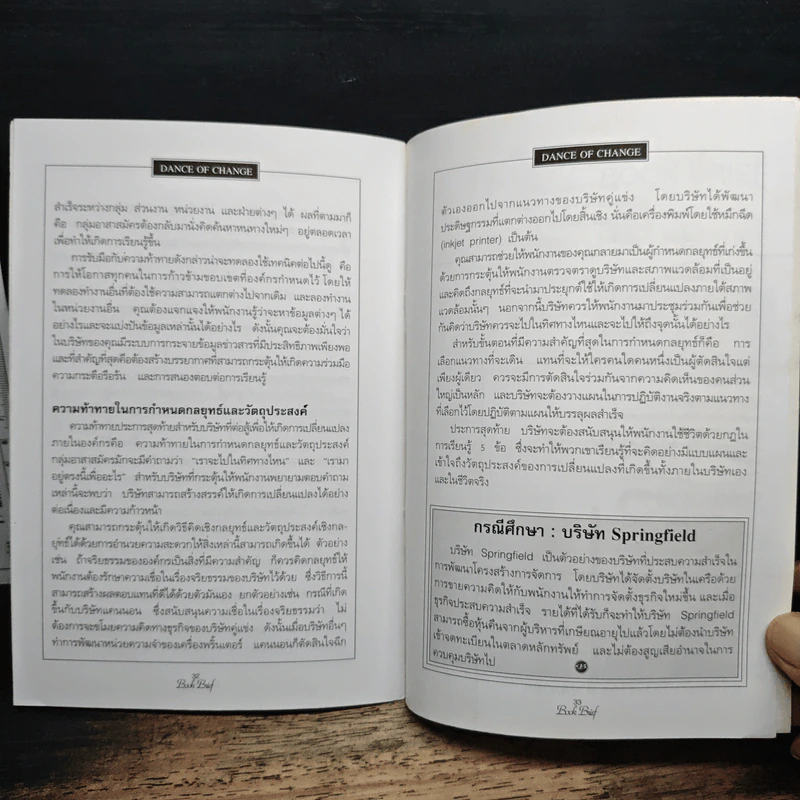 DANCE OF CHANGE
สำเร็จระหว่างกลุ่ม ส่วนงาน หน่วยงาน และฝ่ายต่างๆ ได้ ผลที่ตามมาก็
คือ กลุ่มอาสาสมัครต้องกลับมานั่งคิดค้นหาหนทางใหม่ๆ อยู่ตลอดเวลา
เพื่อทำให้เกิดการเรียนรู้ขึ้น
การรับมือกับความท้าทายดังกล่าวน่าจะทดลองใช้เทคนิคต่อไปนี้ดู คือ
การให้โอกาสทุกคนในการก้าวข้ามขอบเขตที่องค์กรกำหนดไว้ โดยให้
ทดลองทำงานอื่นที่ต้องใช้ความสามารถแตกต่างไปจากเดิม และลองทำงาน
ในหน่วยงานอื่น คุณต้องแจกแจงให้พนักงานรู้ว่าจะหาข้อมูลต่างๆ ได้
อย่างไรและจะแบ่งปันข้อมูลเหล่านั้นได้อย่างไร ดังนั้นคุณจะต้องมั่นใจว่า
ในบริษัทของคุณมีระบบการกระจายข้อมูลข่าวสารที่มีประสิทธิภาพเพียงพอ
และที่สำคัญที่สุดคือต้องสร้างบรรยากาศที่สามารถกระตุ้นให้เกิดความร่วมมือ
ความกระตือรือร้น และการสนองตอบต่อการเรียนรู้
ความท้าทายในการกำหนดกลยุทธ์และวัตถุประสงค์
ความท้าทายประการสุดท้ายสำหรับบริษัทที่ต่อสู้เพื่อให้เกิดการเปลี่ยนแปลง
ภายในองค์กรคือ ความท้าทายในการกำหนดกลยุทธ์และวัตถุประสงค์
กลุ่มอาสาสมัครมักจะมีคำถามว่า "เราจะไปในทิศทางไหน" และ "เรามา
อยู่ตรงนี้เพื่ออะไร" สำหรับบริษัทที่กระตุ้นให้พนักงานพยายามตอบคำถาม
เหล่านี้จะพบว่า บริษัทสามารถสร้างสรรค์ให้เกิดการเปลี่ยนแปลงได้อย่าง
ต่อเนื่องและมีความก้าวหน้า
คุณสามารถกระตุ้นให้เกิดวิธีคิดเชิงกลยุทธ์และวัตถุประสงค์เชิงกล-
ยุทธ์ได้ด้วยการอำนวยความสะดวกให้สิ่งเหล่านี้สามารถเกิดขึ้นได้ ตัวอย่าง
เช่น ถ้าจริยธรรมขององค์กรเป็นสิ่งที่มีความสำคัญ ก็ควรคิดกลยุทธ์ให้
พนักงานต้องรักษาความเชื่อในเรื่องจริยธรรมของบริษัทไว้ด้วย ซึ่งวิธีการนี้
สามารถสร้างผลตอบแทนที่ดีได้ด้วยตัวมันเอง ยกตัวอย่างเช่น กรณีที่เกิด
ขึ้นกับบริษัทแคนนอน ซึ่งสนับสนุนความเชื่อในเรื่องจริยธรรมว่า ไม่
ต้องการจะขโมยความคิดทางธุรกิจของบริษัทคู่แข่ง ดังนั้นเมื่อบริษัทอื่นๆ
ทำการพัฒนาหน่วยความจำของเครื่องพริ้นเตอร์ แคนนอนก็ตัดสินใจฉีก
32
Book Brief
DANCE OF CHANGE
ตัวเองออกไปจากแนวทางของบริษัทคู่แข่ง โดยบริษัทได้พัฒนา
ประดิษฐกรรมที่แตกต่างออกไปโดยสิ้นเชิง นั่นคือเครื่องพิมพ์โดยใช้หมึกฉีด
(inkjet printer) เป็นต้น
คุณสามารถช่วยให้พนักงานของคุณกลายมาเป็นผู้กำหนดกลยุทธ์ที่เก่งขึ้น
ด้วยการกระตุ้นให้พนักงานตรวจตราดูบริษัทและสภาพแวดล้อมที่เป็นอยู่
และคิดถึงกลยุทธ์ที่จะนำมาประยุกต์ใช้ให้เกิดการเปลี่ยนแปลงภายใต้สภาพ
แวดล้อมนั้นๆ นอกจากนี้บริษัทควรให้พนักงานมาประชุมร่วมกันเพื่อช่วย
กันคิดว่าบริษัทควรจะไปในทิศทางไหนและจะไปให้ถึงจุดนั้นได้อย่างไร
สำหรับขั้นตอนที่มีความสำคัญที่สุดในการกำหนดกลยุทธ์ก็คือ การ
เลือกแนวทางที่จะเดิน แทนที่จะให้ใครคนใดคนหนึ่งเป็นผู้ตัดสินใจแต่
เพียงผู้เดียว ควรจะมีการตัดสินใจร่วมกันจากความคิดเห็นของคนส่วน
ใหญ่เป็นหลัก และบริษัทจะต้องวางแผนในการปฏิบัติงานจริงตามแนวทาง
ที่เลือกไว้โดยปฏิบัติตามแผนให้บรรลุผลสำเร็จ
ประการสุดท้าย บริษัทจะต้องสนับสนุนให้พนักงานใช้ชีวิตด้วยกฎใน
การเรียนรู้ 5 ข้อ ซึ่งจะทำให้พวกเขาเรียนรู้ที่จะคิดอย่างมีแบบแผนและ
เข้าใจถึงวัตถุประสงค์ของการเปลี่ยนแปลงที่เกิดขึ้นทั้งภายในบริษัทเอง
และในชีวิตจริง
กรณีศึกษา : บริษัท Springfield
บริษัท Springfield เป็นตัวอย่างของบริษัทที่ประสบความสำเร็จใน
การพัฒนาโครงสร้างการจัดการ โดยบริษัทได้จัดตั้งบริษัทในเครือด้วย
การขายความคิดให้กับพนักงานให้ทำการจัดตั้งธุรกิจใหม่ขึ้น และเมื่อ
ธุรกิจประสบความสำเร็จ รายได้ที่ได้รับก็จะทำให้บริษัท Springfield
สามารถซื้อหุ้นคืนจากผู้บริหารที่เกษียณอายุไปแล้วโดยไม่ต้องนำบริษัท
เข้าจดทะเบียนในตลาดหลักทรัพย์ และไม่ต้องสูญเสียอำนาจในการ
ควบคุมบริษัทไป
33
Book Brief